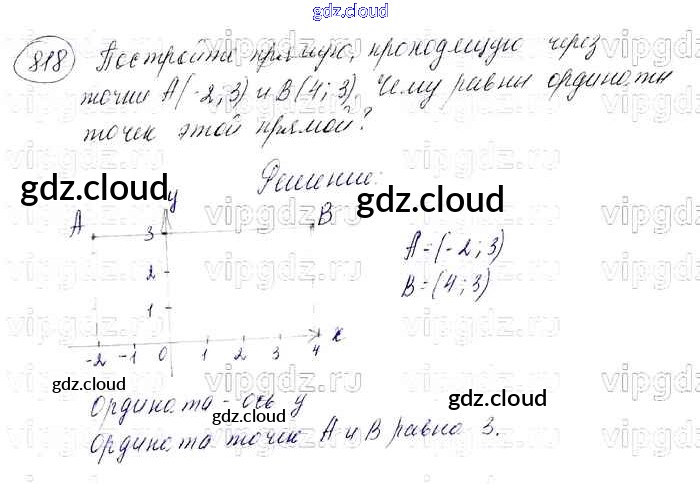 gdz.cloud
818 Постройте прямую, проходящую через
точки А(-2; 3) и В(4; 3). Чему равны ординаты
точек этой прямой?
Решение:
gdz.cloud
gdz.cloud
y
А
3
В
2
1
-2 -1 0 1 2 3 4 x
А=(-2; 3)
В=(4; 3)
gdz.cloud
gdz.cloud
Ордината - ось y
gdz.cloud
Ордината точек А и В равна 3.
vipgdz.ru